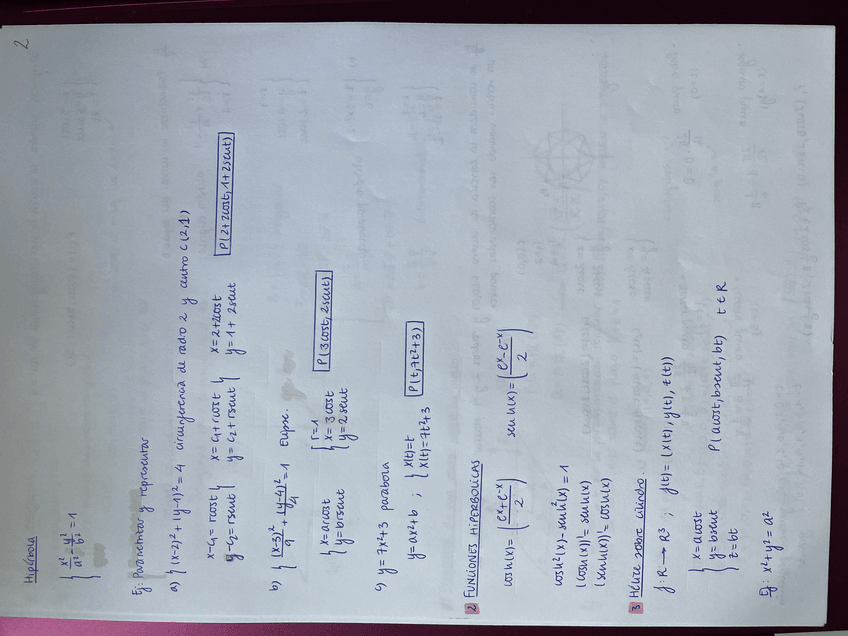 2
Hipérbola
{ x²/a² - y²/b² = 1
Ej: Parametrizar y representar
a) { (x-2)² + (y-1)² = 4 circunferencia de radio 2 y centro C(2,1)
x-c₁ = rcost } x = c₁+rcost } x = 2+2cost
y-c₂ = rsent } y = c₂+rsent } y = 1+2sent P(2+2cost, 1+2sent)
b) { (x-5)²/9 + (y-4)²/4 = 1 Elipse.
{ r=1
{ x = arcost x = 3cost
{ y = brsent y = 2sent P(3cost, 2sent)
c) y = 7x²+3 parabola
y = ax²+b ; { x(t)=t
{ x(t)=7t²+3 P(t, 7t²+3)
2 FUNCIONES HIPERBÓLICAS
cosh(x) = (eˣ+e⁻ˣ/2) senh(x) = (eˣ-e⁻ˣ/2)
cosh²(x) - senh²(x) = 1
(cosh(x))' = senh(x)
(senh(x))' = cosh(x)
3 Hélice sobre cilindro.
f: R → R³ ; f(t) = (x(t), y(t), z(t))
{ x = acost
{ y = bsent P(acost, bsent, bt) t ∈ R
{ z = bt
Ej: x²+y² = a²